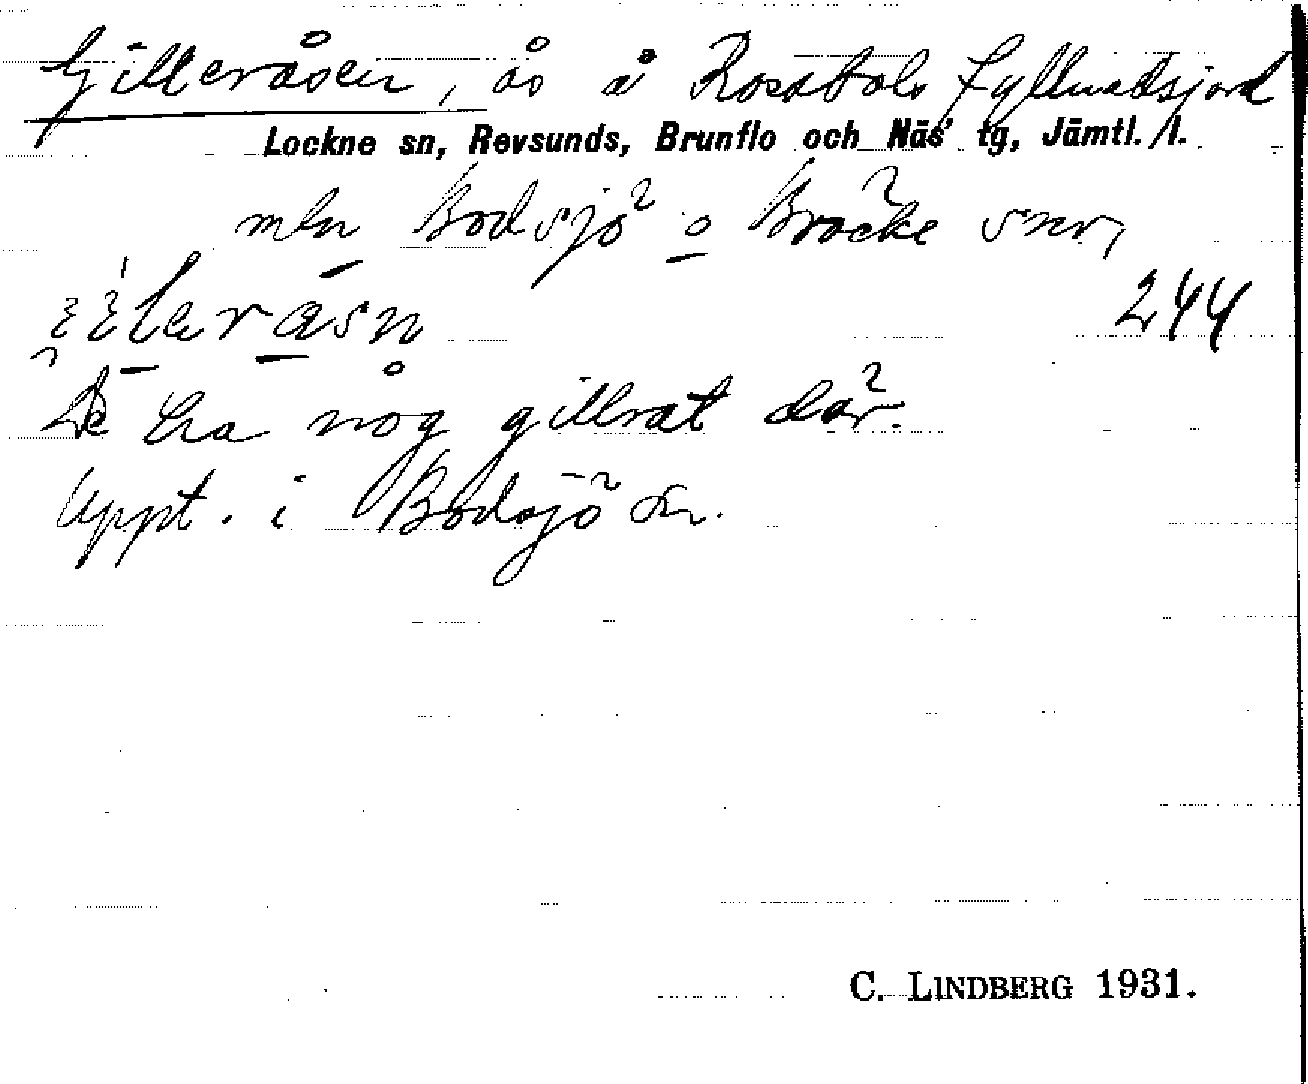 Gilleråsen, ås å Rossbols fyllnadsjord
Lockne sn, Revsunds, Brunflo och Näs' tg, Jämtl. l.
mln Bodsjö o Bräcke snr,
244
De ha nog gillrat där.
Uppt. i Bodsjö sn.
C. LINDBERG 1931.